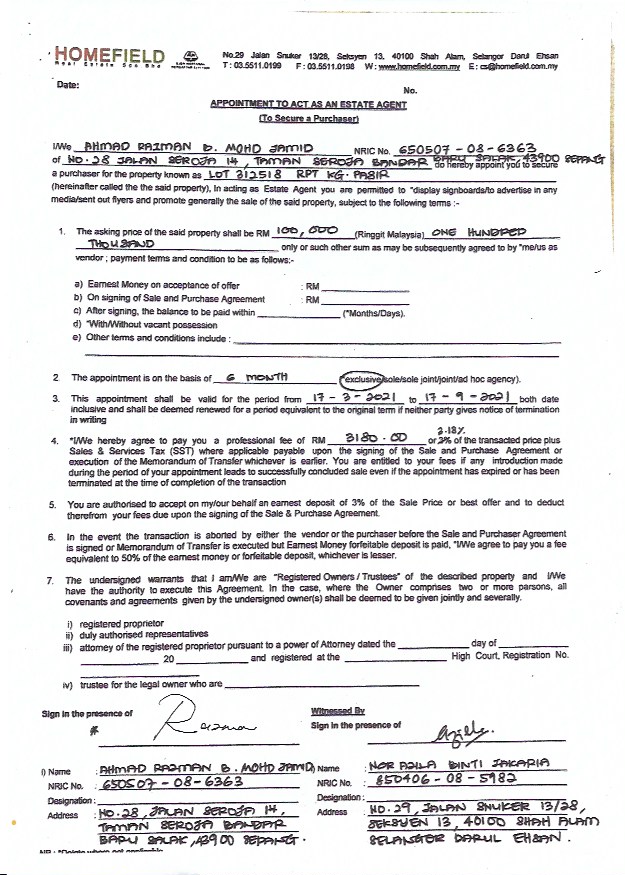 HOMEFIELD
Real Estate Sdn Bhd
No.29 Jalan Snuker 13/28, Seksyen 13, 40100 Shah Alam, Selangor Darul Ehsan
T : 03.5511.0199 F : 03.5511.0198 W : www.homefield.com.my E : cs@homefield.com.my
Date:
No.
APPOINTMENT TO ACT AS AN ESTATE AGENT
(To Secure a Purchaser)
I/We AHMAD RAZMAN B. MOHD JAMID NRIC No. 650507-08-6363
of NO.28 JALAN SEROJA 14, TAMAN SEROJA BANDAR BARU SALAK, 43900 SEPANG do hereby appoint you to secure
a purchaser for the property known as LOT 312518 RPT KG. PASIR
(hereinafter called the the said property), In acting as Estate Agent you are permitted to "display signboards/to advertise in any
media/sent out flyers and promote generally the sale of the said property, subject to the following terms :-
1. The asking price of the said property shall be RM 100,000 (Ringgit Malaysia) ONE HUNDRED
THOUSAND only or such other sum as may be subsequently agreed to by *me/us as
vendor ; payment terms and condition to be as follows:-
a) Earnest Money on acceptance of offer : RM
b) On signing of Sale and Purchase Agreement : RM
c) After signing, the balance to be paid within (*Months/Days).
d) *With/Without vacant possession
e) Other terms and conditions include :
2 The appointment is on the basis of 6 MONTH (*exclusive/sole/sole joint/joint/ad hoc agency).
3. This appointment shall be valid for the period from 17-3-2021 to 17-9-2021 both date
inclusive and shall be deemed renewed for a period equivalent to the original term if neither party gives notice of termination
in writing
4. *I/We hereby agree to pay you a professional fee of RM 3180.00 or 2% of the transacted price plus
3.18%
Sales & Services Tax (SST) where applicable payable upon the signing of the Sale and Purchase Agreement or
execution of the Memorandum of Transfer whichever is earlier. You are entitled to your fees if any introduction made
during the period of your appointment leads to successfully concluded sale even if the appointment has expired or has been
terminated at the time of completion of the transaction
5. You are authorised to accept on my/our behalf an earnest deposit of 3% of the Sale Price or best offer and to deduct
therefrom your fees due upon the signing of the Sale & Purchase Agreement.
6. In the event the transaction is aborted by either the vendor or the purchaser before the Sale and Purchaser Agreement
is signed or Memorandum of Transfer is executed but Earnest Money forfeitable deposit is paid, *I/We agree to pay you a fee
equivalent to 50% of the earnest money or forfeitable deposit, whichever is lesser.
7. The undersigned warrants that I am/We are "Registered Owners / Trustees" of the described property and I/We
have the authority to execute this Agreement. In the case, where the Owner comprises two or more parsons, all
covenants and agreements given by the undersigned owner(s) shall be deemed to be given jointly and severally.
i) registered proprietor
ii) duly authorised representatives
iii) attorney of the registered proprietor pursuant to a power of Attorney dated the day of
20 and registered at the High Court, Registration No.
iv) trustee for the legal owner who are
Sign in the presence of
Witnessed By
Sign in the presence of
i) Name : AHMAD RAZMAN B. MOHD JAMID
NRIC No. : 650507-08-6363
Designation :
Address : NO.28, JALAN SEROJA 14,
TAMAN SEROJA BANDAR
BARU SALAK, 43900 SEPANG.
) Name : NOR AZILA BINTI ZAKARIA
NRIC No. : 850406-08-5982
Designation :
Address : NO.29, JALAN SNUKER 13/28,
SEKSYEN 13, 40100 SHAH ALAM
SELANGOR DARUL EHSAN.